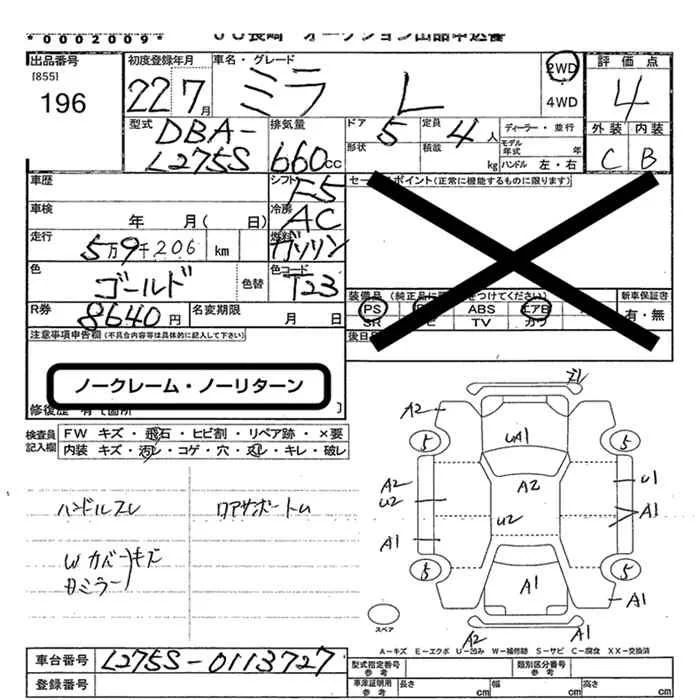 *0002009*
JU長崎 オークション出品申込書
出品番号
[855]
196
初度登録年月
22 7月
車名・グレード
ミラ L
2WD
4WD
評価点
4
外装 内装
C B
型式
DBA-
L275S
排気量
660cc
ドア 5
形状
定員 4人
積載 kg
ディーラー・並行
モデル年式 年
ハンドル 左・右
車歴
シフト F5
セールスポイント(正常に機能するものに限ります)
車検 年 月( 日)
冷房 AC
走行 5万9千206 km
燃料 ガソリン
色 ゴールド
色替
色コード T23
R券 8640円
名変期限 月 日
装備品(純正品に をつけてください)
PS ABS エアB
SR TV カワ
新車保証書
有・無
後日
注意事項申告欄(不具合内容等は具体的に記入して下さい)
ノークレーム・ノーリターン
修復歴 有(箇所 )
検査員記入欄
FW キズ・飛石・ヒビ割・リペア跡・×要
内装 キズ・汚レ・コゲ・穴・スレ・キレ・破レ
ハンドルスレ
Wカバーキズ
Bミラー
A2
UA1
5 5
A2
U2
A2
U1
U2
A1
A1
5 5
A1
A1
A2 U1
スペア
A-キズ E-エクボ U-凹み W-補修跡 S-サビ C-腐食 XX-交換済
車台番号 L275S-0113727
登録番号
型式指定番号 参考
類別区分番号 参考
車庫証明用 参考
長さ cm 幅 cm 高さ cm